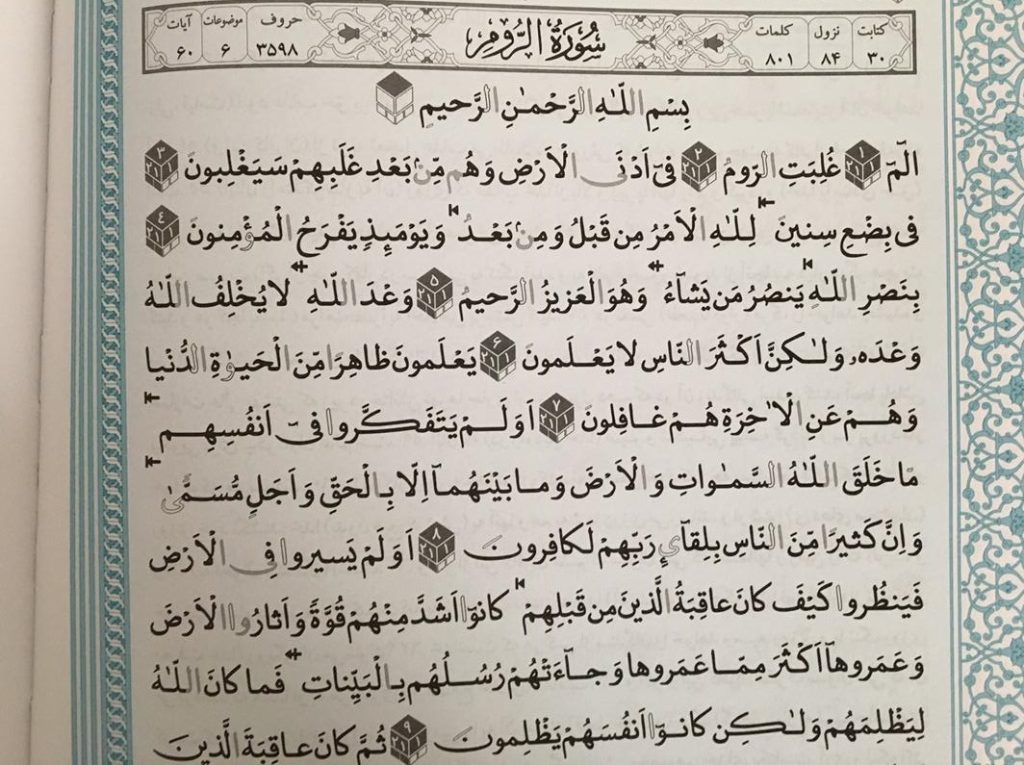 کتابت نزول کلمات سُورَةُ الرُّومِ حروف موضوعات آیات
۳۰ ۸۴ ۸۰۱ ۳۵۹۸ ۶ ۶۰
بِسْمِ اللّٰهِ الرَّحْمٰنِ الرَّحیمِ
الٓمٓ ۱ غُلِبَتِ الرّومُ ۲ فیٓ اَدْنَی الْاَرْضِ وَهُم مِّنْ بَعْدِ غَلَبِهِمْ سَیَغْلِبونَ ۳
فی بِضْعِ سِنینَ لِلّٰهِ الْاَمْرُ مِن قَبْلُ وَمِنْ بَعْدُ وَیَوْمَئِذٍ یَفْرَحُ الْمُؤْمِنونَ ۴
بِنَصْرِ اللّٰهِ یَنصُرُ مَن یَشآءُ وَهُوَ الْعَزیزُ الرَّحیمُ ۵ وَعْدَ اللّٰهِ لا یُخْلِفُ اللّٰهُ
وَعْدَهُ وَلٰکِنَّ اَکْثَرَ النّاسِ لا یَعْلَمونَ ۶ یَعْلَمونَ ظاهِرًا مِّنَ الْحَیوٰةِ الدُّنْیا
وَهُمْ عَنِ الْاٰخِرَةِ هُمْ غافِلونَ ۷ اَوَلَمْ یَتَفَکَّروا فیٓ اَنفُسِهِم
مّا خَلَقَ اللّٰهُ السَّمٰواتِ وَالْاَرْضَ وَمابَیْنَهُمآ اِلّا بِالْحَقِّ وَاَجَلٍ مُّسَمًّی
وَاِنَّ کَثیرًا مِّنَ النّاسِ بِلِقآئِ رَبِّهِمْ لَکافِرونَ ۸ اَوَلَمْ یَسیروا فِی الْاَرْضِ
فَیَنظُروا کَیْفَ کانَ عاقِبَةُ الَّذینَ مِن قَبْلِهِمْ کانوٓا اَشَدَّ مِنْهُمْ قُوَّةً وَاَثارُوا الْاَرْضَ
وَعَمَروهآ اَکْثَرَ مِمّا عَمَروها وَجآءَتْهُمْ رُسُلُهُم بِالْبَیِّناتِ فَما کانَ اللّٰهُ
لِیَظْلِمَهُمْ وَلٰکِن کانوٓا اَنفُسَهُمْ یَظْلِمونَ ۹ ثُمَّ کانَ عاقِبَةَ الَّذینَ